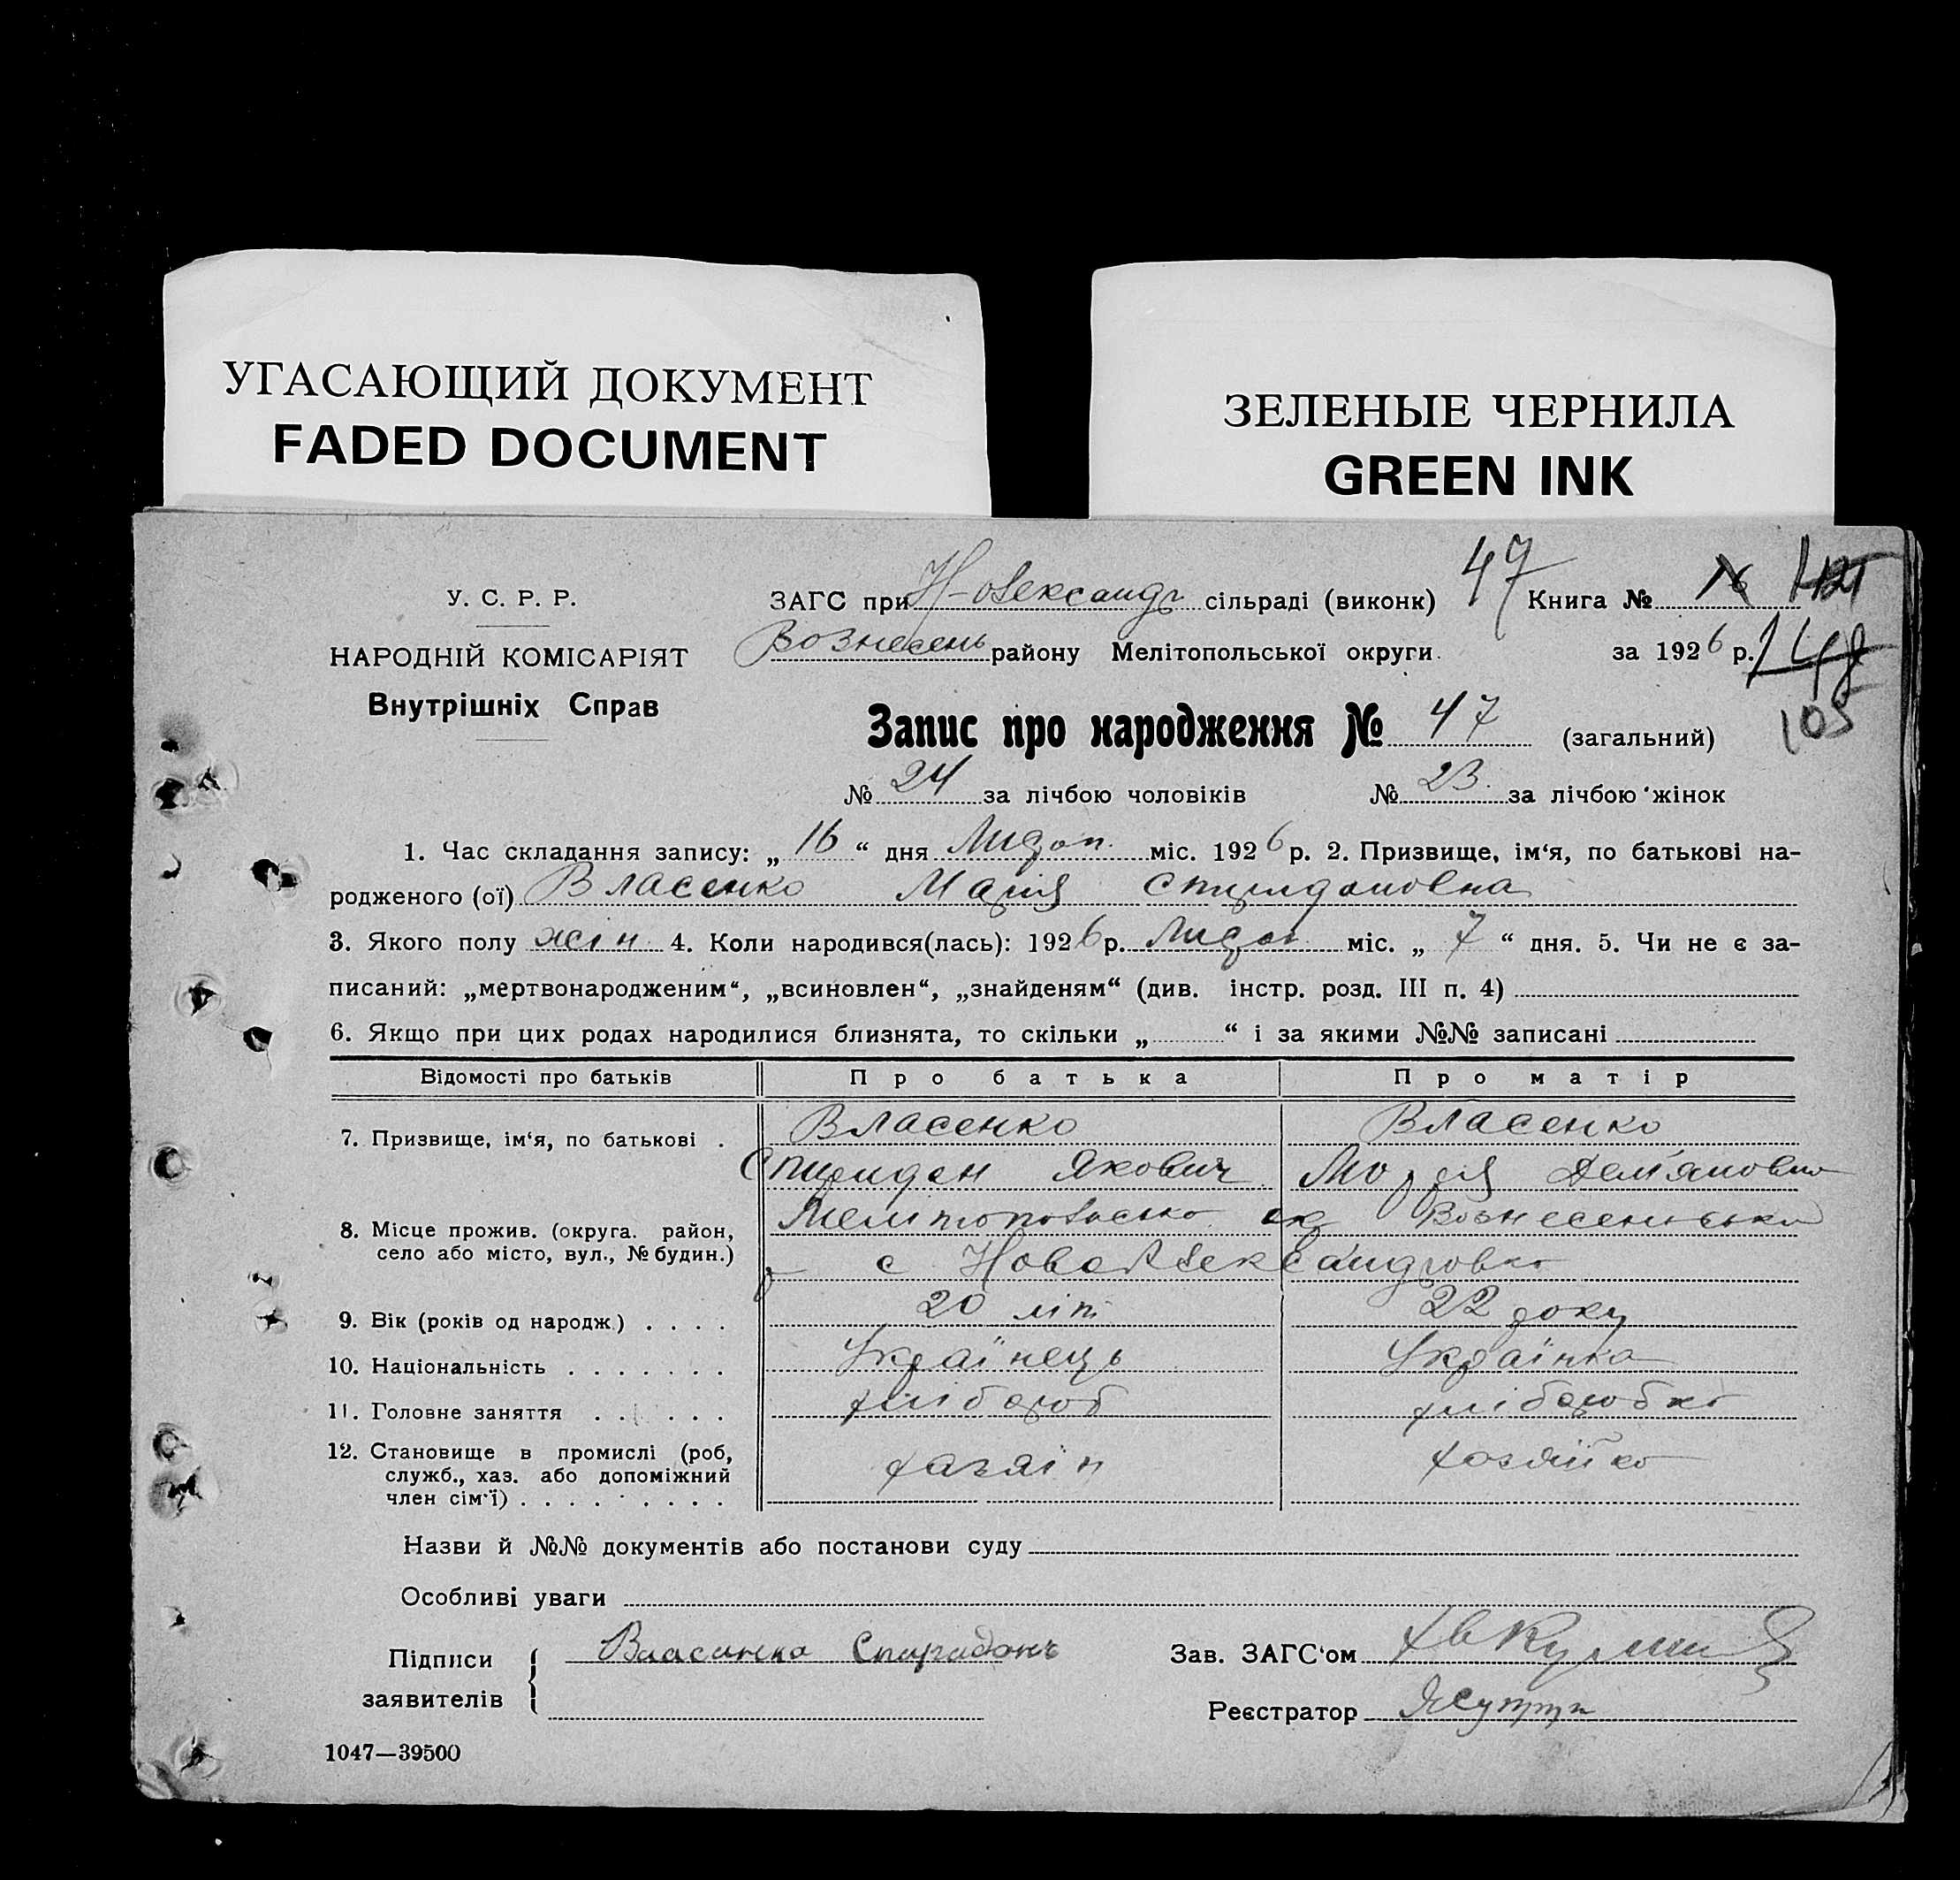 УГАСАЮЩИЙ ДОКУМЕНТ
FADED DOCUMENT
ЗЕЛЕНЫЕ ЧЕРНИЛА
GREEN INK
У. С. Р. Р.
НАРОДНІЙ КОМІСАРІЯТ
Внутрішніх Справ
ЗАГС при Н-олександр сільраді (виконк) 47 Книга №
Вознесень району Мелітопольської округи. за 1926 р.
105
Запис про народження № 47 (загальний)
№ 24 за лічбою чоловіків № 23 за лічбою жінок
1. Час складання запису: „ 16 “ дня міс. 1926 р. 2. Призвище, ім‘я, по батькові на-
родженого (ої) Власенко Марія Спиридоновна
3. Якого полу жін 4. Коли народився(лась): 1926 р. міс. „ 7 “ дня. 5. Чи не є за-
писаний: „мертвонародженим“, „всиновлен“, „знайденям“ (див. інстр. розд. III п. 4)
6. Якщо при цих родах народилися близнята, то скільки „ “ і за якими №№ записані
Відомості про батьків Про батька Про матір
7. Призвище, ім‘я, по батькові . Власенко Власенко
Спиридон Якович Марія Дем'яновна
8. Місце прожив. (округа. район, Мелітопольско ок Вознесенсько
село або місто, вул., № будин.) р с Новоалександровка
9. Вік (років од народж.) . . . . 20 літ 22 року
10. Національність . . . . . . . Українець Українка
11. Головне заняття . . . . . . хлібороб хліборобка
12. Становище в промислі (роб, хазяін хозяйка
служб., хаз. або допоміжний
член сім‘ї) . . . . . . . . .
Назви й №№ документів або постанови суду
Особливі уваги
Підписи Власенко Спиридонъ
заявителів
Зав. ЗАГС‘ом
Реєстратор
1047—39500